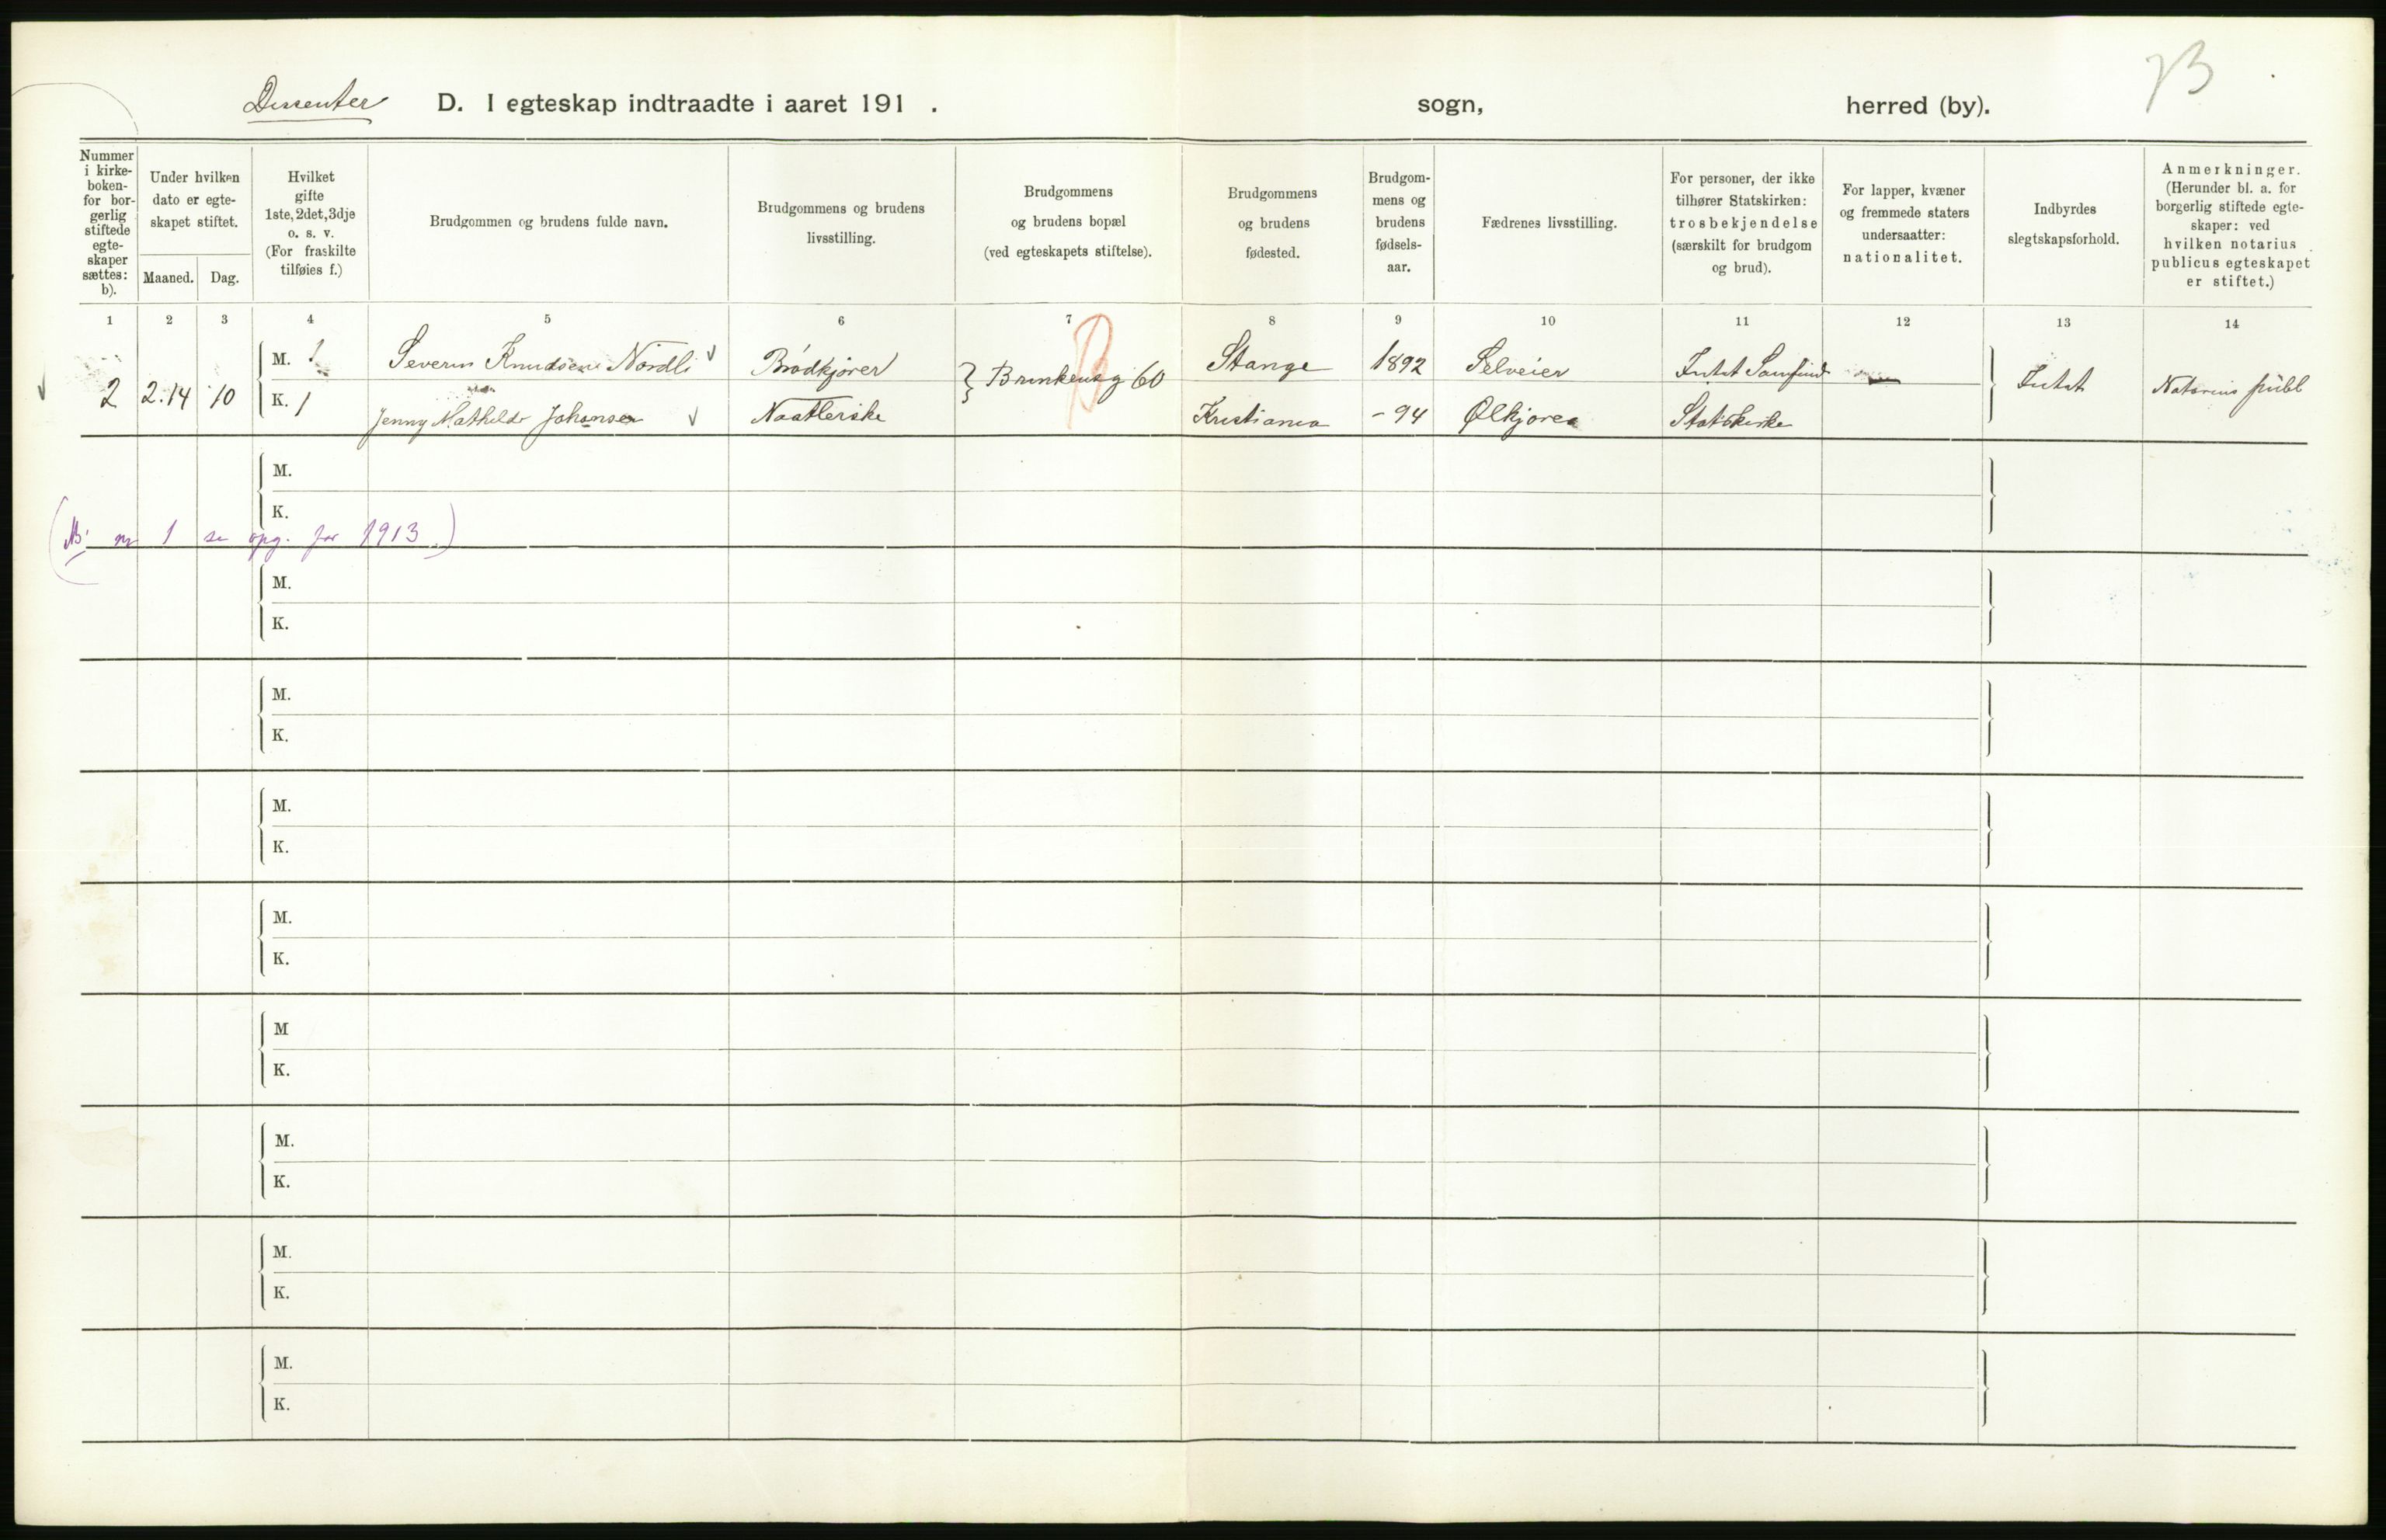 Dissenter D. I egteskap indtraadte i aaret 191 . sogn, herred (by).
Nummer i kirke-boken- for bor-gerlig stiftede egte-skaper sættes: b).
Under hvilken dato er egte-skapet stiftet.
Maaned. Dag.
Hvilket gifte 1ste, 2det, 3dje o. s. v. (For fraskilte tilføies f.)
Brudgommen og brudens fulde navn.
Brudgommens og brudens livsstilling.
Brudgommens og brudens bopæl (ved egteskapets stiftelse).
Brudgommens og brudens fødested.
Brudgom-mens og brudens fødsels-aar.
Fædrenes livsstilling.
For personer, der ikke tilhører Statskirken: trosbekjendelse (særskilt for brudgom og brud).
For lapper, kvæner og fremmede staters undersaatter: nationalitet.
Indbyrdes slegtskapsforhold.
Anmerkninger. (Herunder bl. a. for borgerlig stiftede egte-skaper: ved hvilken notarius publicus egteskapet er stiftet.)
1 2 3 4 5 6 7 8 9 10 11 12 13 14
M. 1 Severin Knudsen Nordli Brødkjører Stange 1892 Selveier Intet Samfund
2 2.14 10 Brinkensg 60 Intet Notarius publ
K. 1 Jenny Mathilde Johansen Naatlerske Kristiania - 94 Ølkjører Statskirke
M.
K.
nr 1 se opg. for 1913)
M.
K.
M.
K.
M.
K.
M.
K.
M
K.
M.
K.
M.
K.
M.
K.